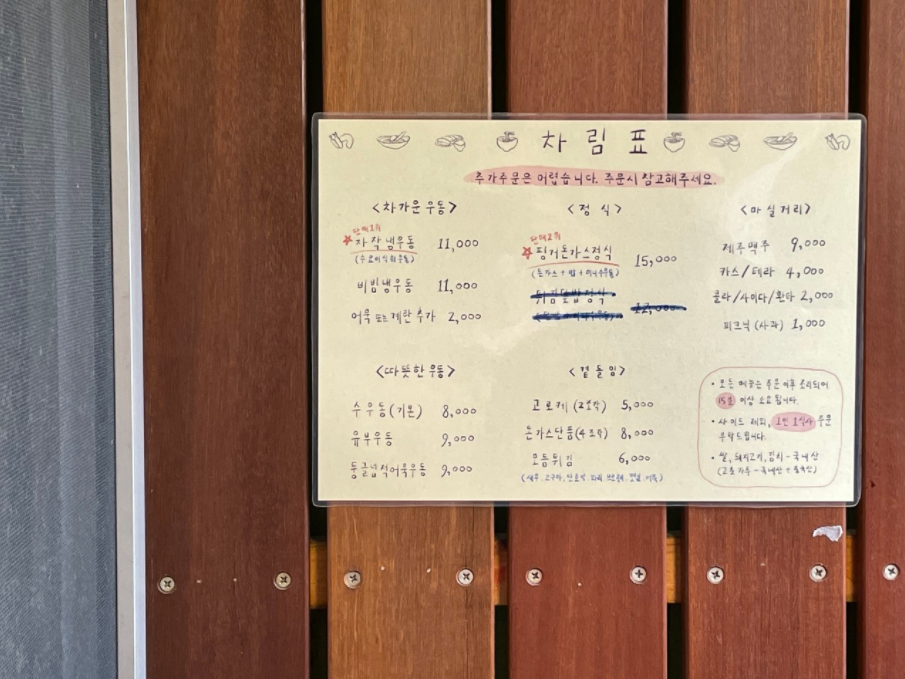 차림표
추가주문은 어렵습니다. 주문시 참고해주세요.
<차가운 우동>
판매1위
자작냉우동 11,000
비빔냉우동 11,000
어묵 또는 계란 추가 2,000
<따뜻한 우동>
수우동(기본) 8,000
유부우동 9,000
둥글넙적어묵우동 9,000
<정식>
판매2위
핑거돈가스정식 15,000
(돈가스 + 밥 + 미니우동)
튀김덮밥정식 12,000
<곁들임>
고로케(2조각) 5,000
돈가스단품(4조각) 8,000
모듬튀김 6,000
<마실거리>
제주맥주 9,000
카스/테라 4,000
콜라/사이다/환타 2,000
피크닉(사과) 1,000
• 모든 메뉴는 주문 이후 조리되어
15분 이상 소요됩니다.
• 사이드 제외, 1인 1식사 주문
부탁드립니다.
• 쌀, 돼지고기, 김치 - 국내산
(고춧가루 - 국내산 + 중국산)